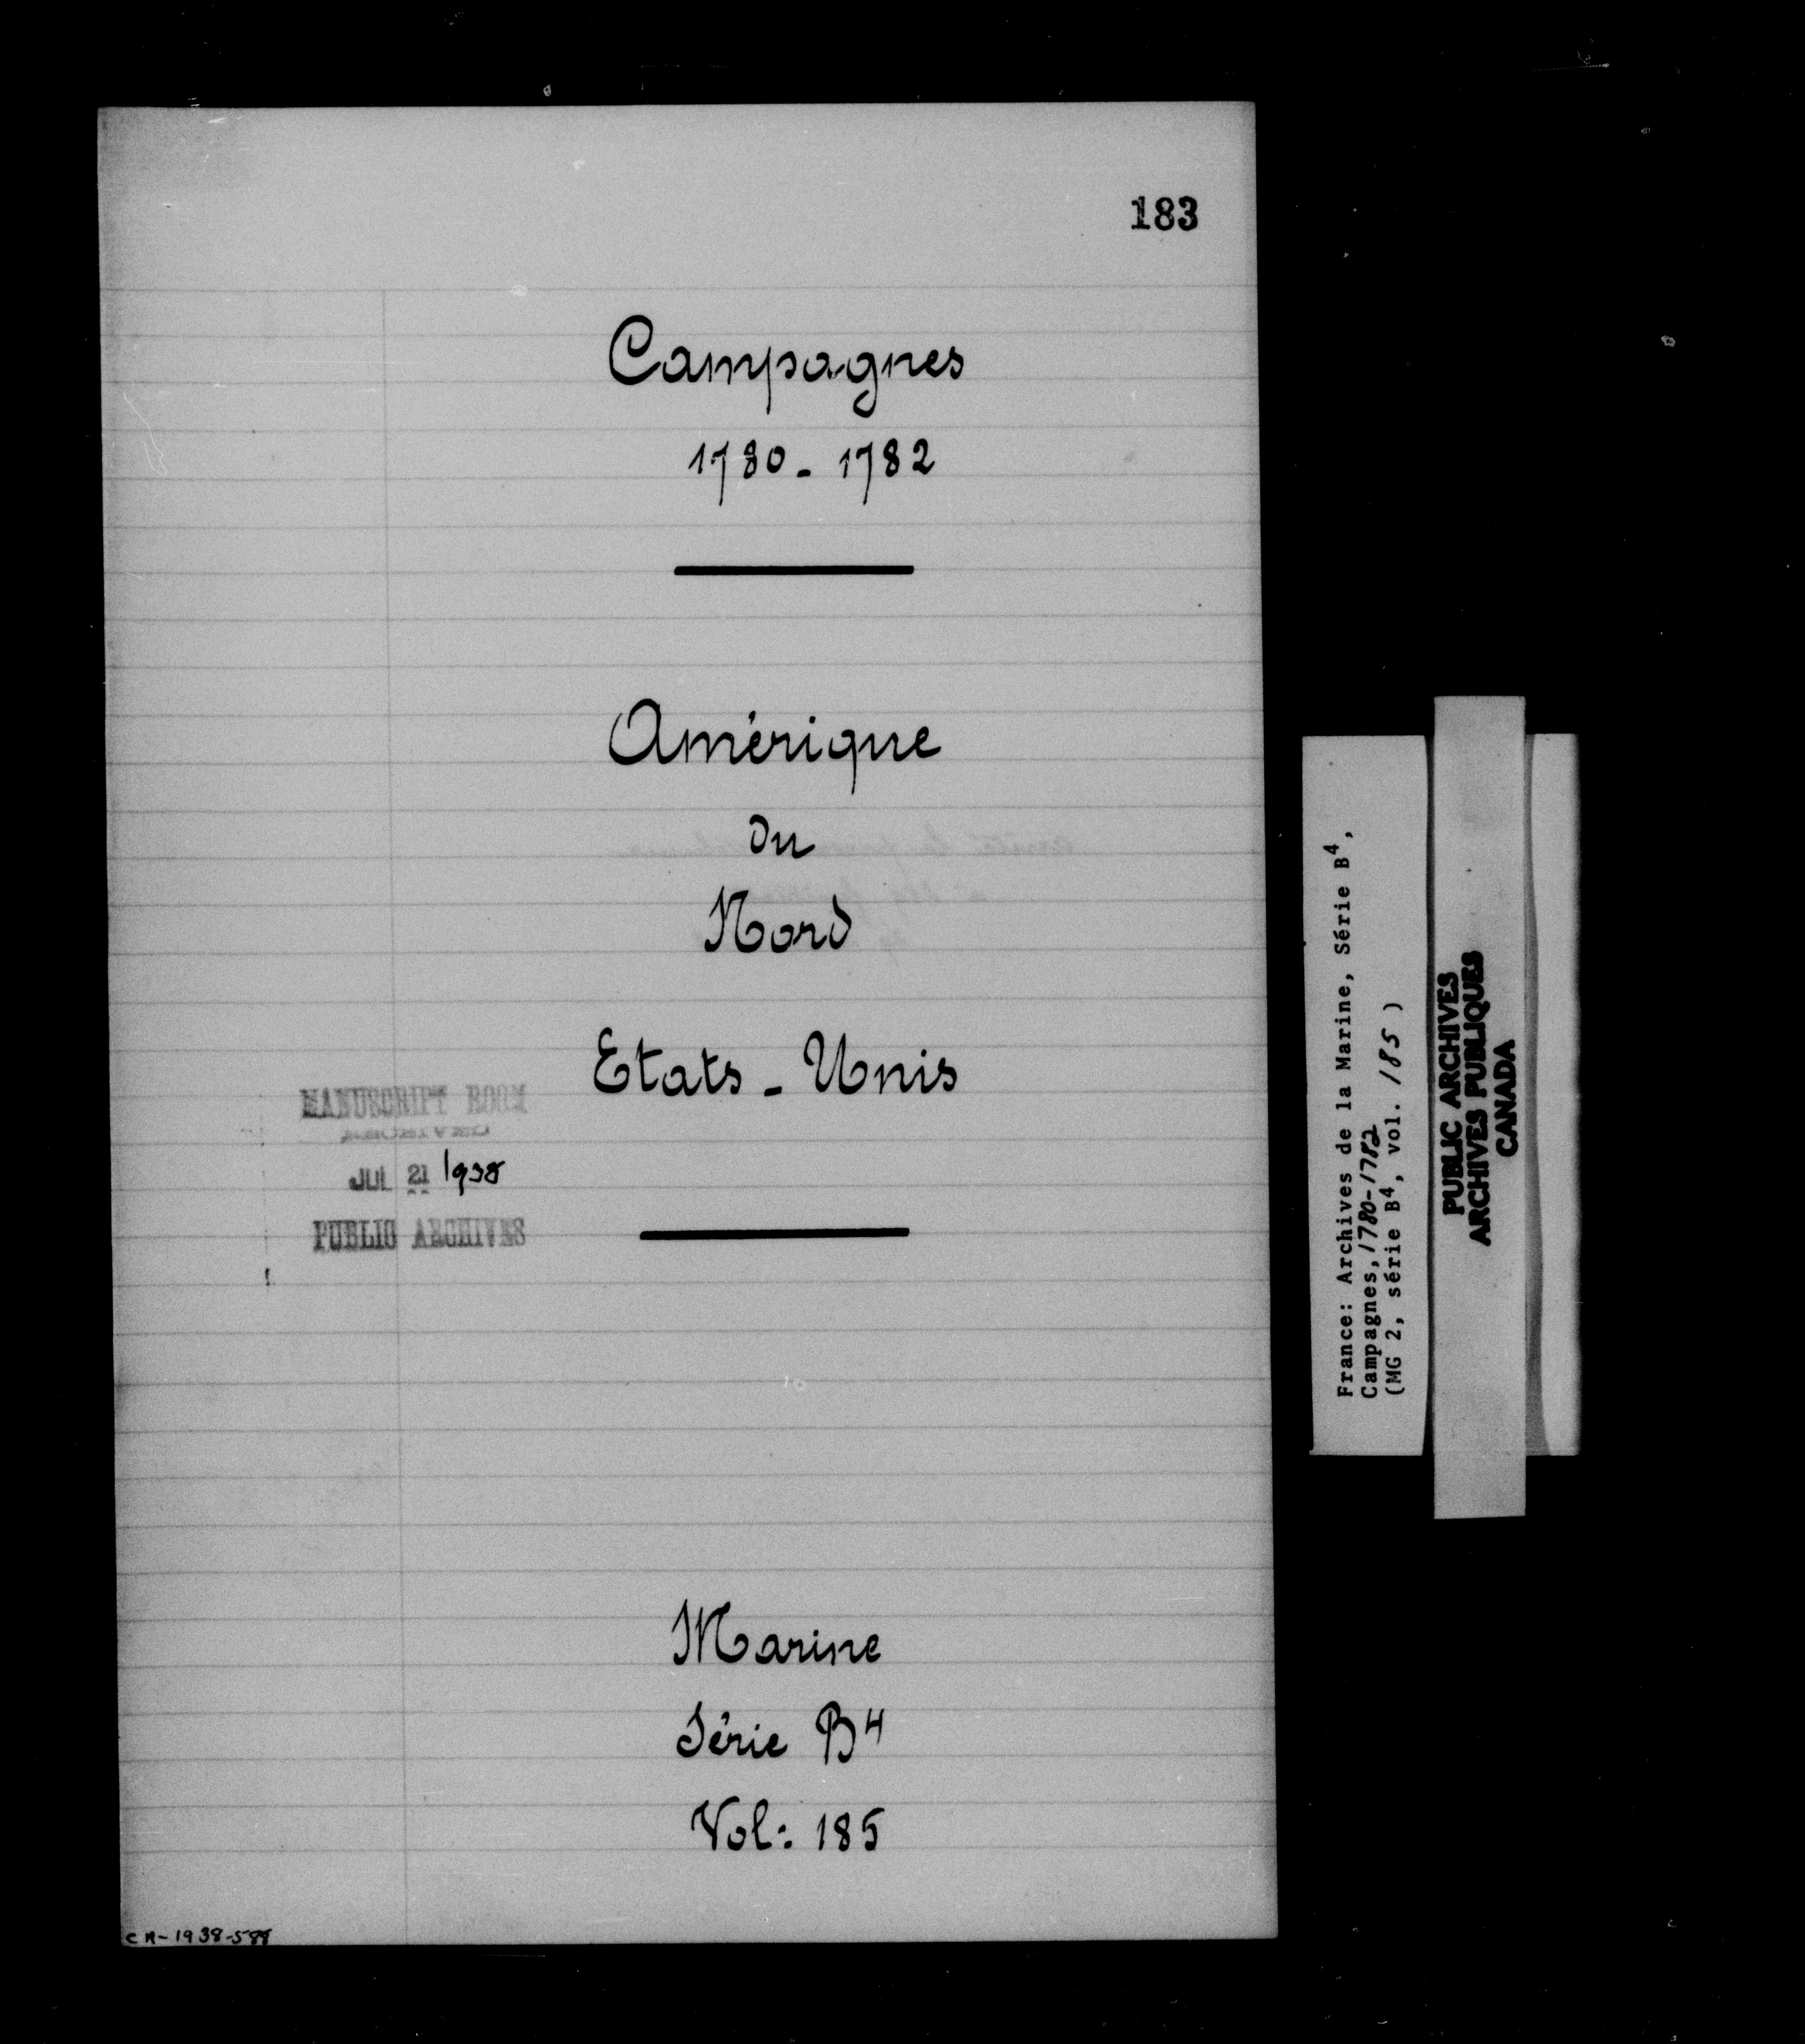 183
Campagnes
1780-1782
Amérique
du
Nord
Etats-Unis
MANUSCRIPT ROOM
RECEIVED
JUL 21 1938
PUBLIC ARCHIVES
Marine
Série B4
Vol: 185
France: Archives de la Marine, Série B4,
Campagnes, 1780-1782
(MG 2, série B4, vol. 185)
PUBLIC ARCHIVES
ARCHIVES PUBLIQUES
CANADA